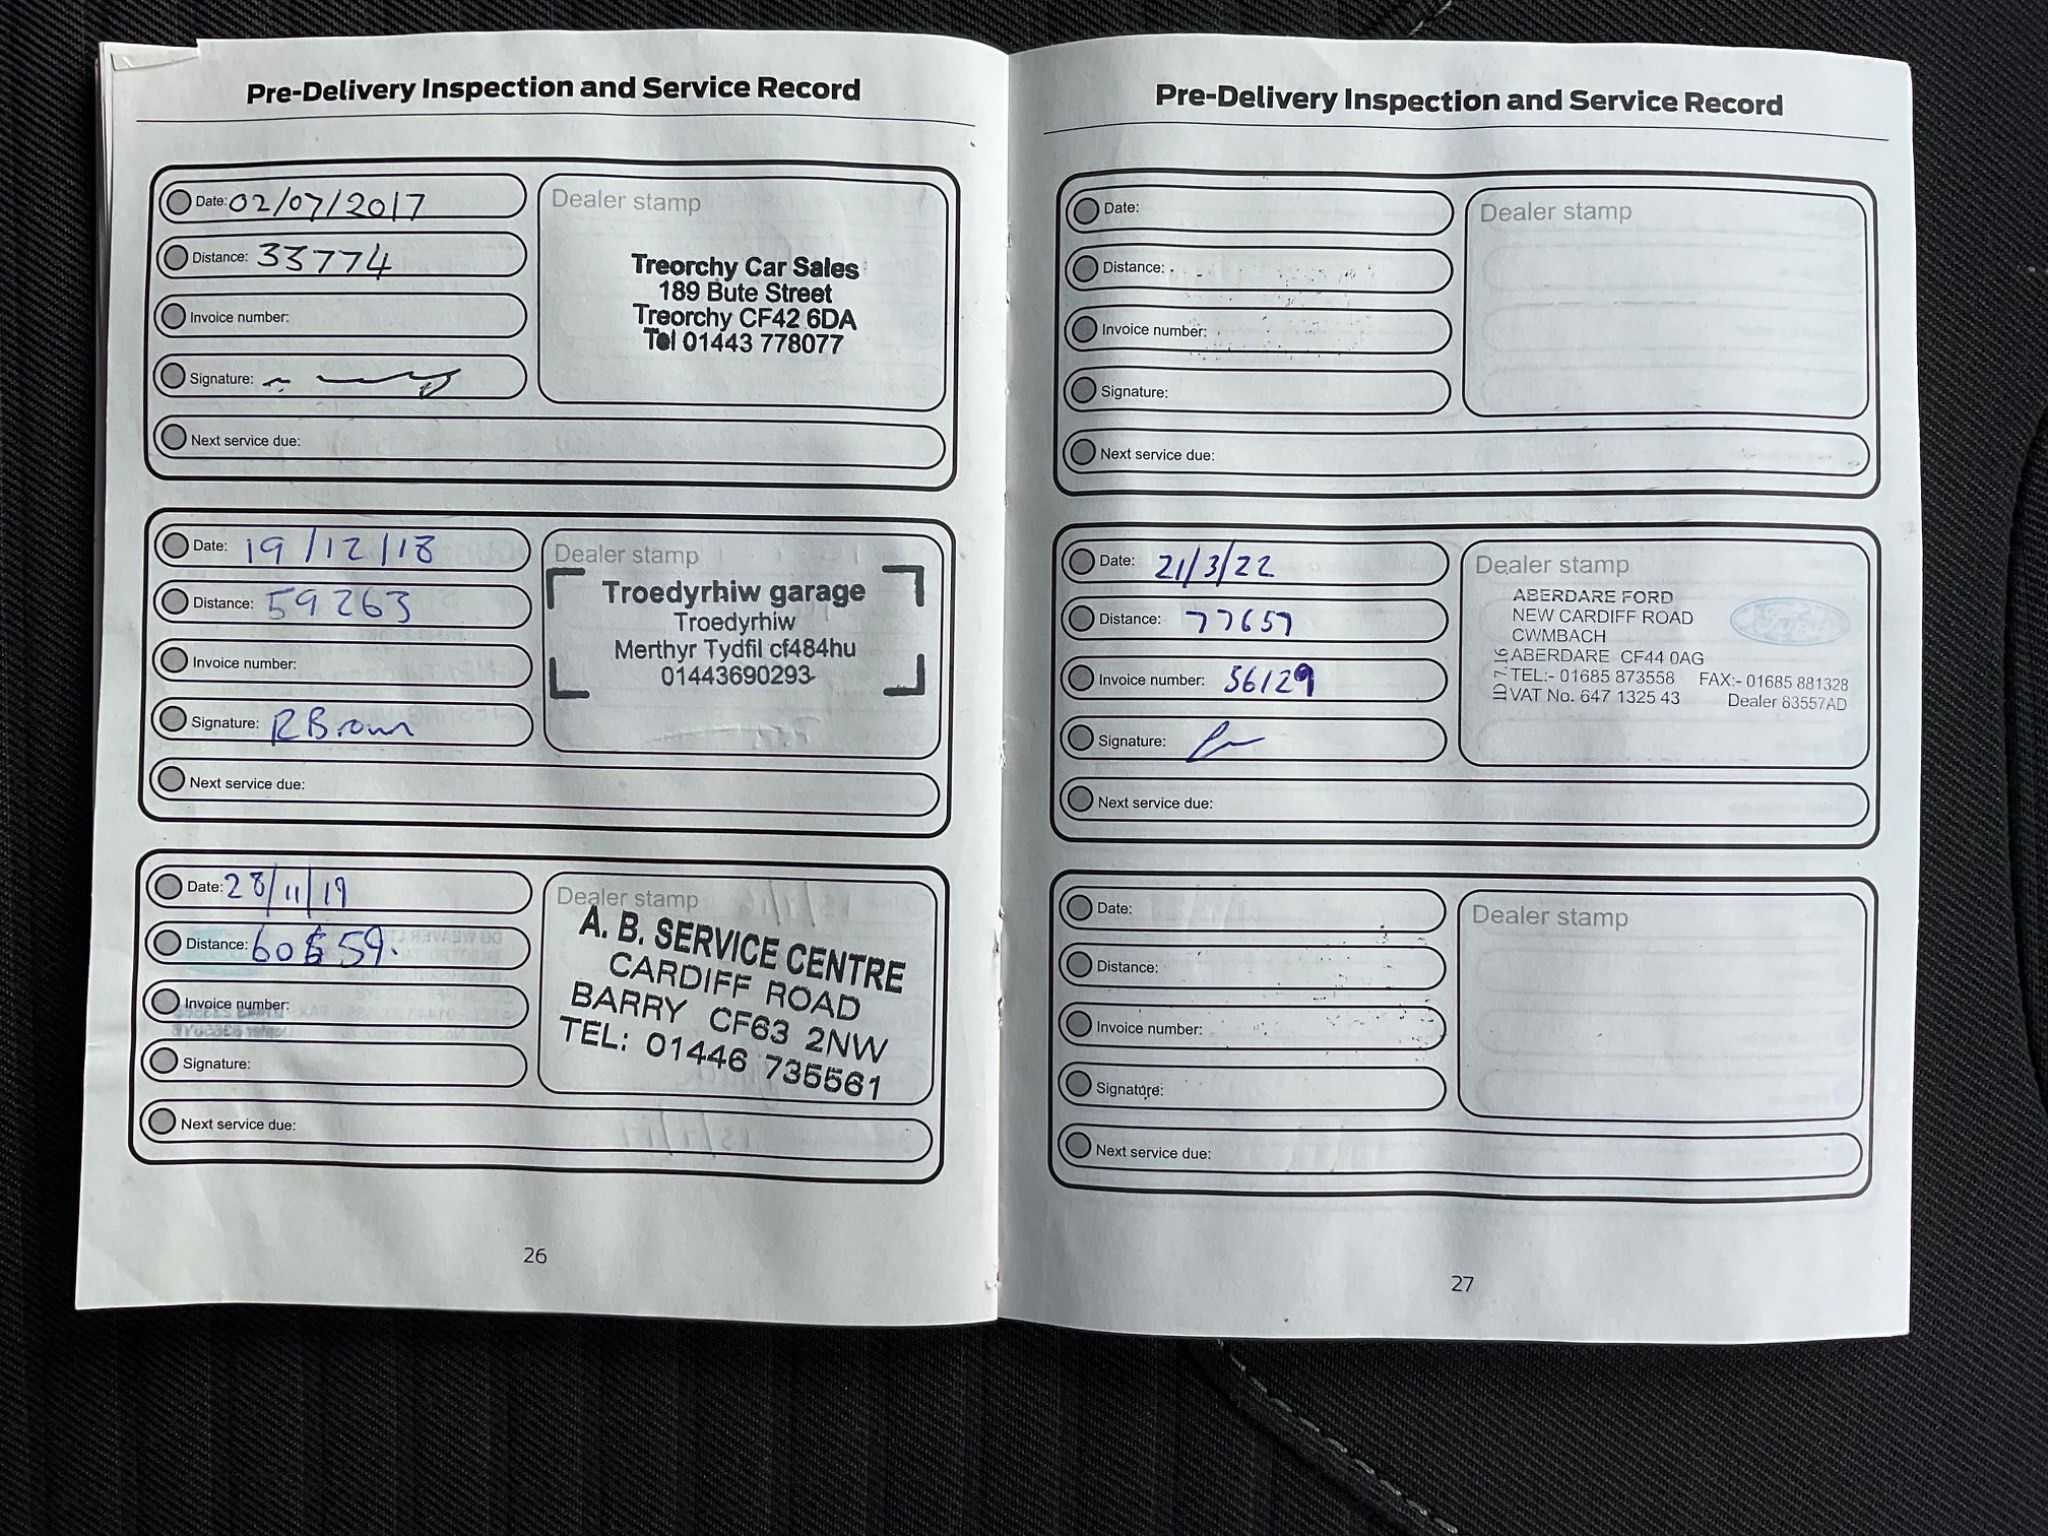 Pre-Delivery Inspection and Service Record
Date: 02/07/2017
Distance: 33774
Invoice number:
Signature:
Next service due:
Dealer stamp
Treorchy Car Sales
189 Bute Street
Treorchy CF42 6DA
Tel 01443 778077
Date: 19/12/18
Distance: 59263
Invoice number:
Signature: R Brown
Next service due:
Dealer stamp
Troedyrhiw garage
Troedyrhiw
Merthyr Tydfil cf484hu
01443690293
Date: 28/11/19
Distance:
Invoice number:
Signature:
Next service due:
Dealer stamp
A. B. SERVICE CENTRE
CARDIFF ROAD
BARRY CF63 2NW
TEL: 01446 735561
26
Pre-Delivery Inspection and Service Record
Date:
Distance:
Invoice number:
Signature:
Next service due:
Dealer stamp
Date: 21/3/22
Distance: 77657
Invoice number: 56129
Signature:
Next service due:
Dealer stamp
ABERDARE FORD
NEW CARDIFF ROAD
CWMBACH
ABERDARE CF44 0AG
TEL:- 01685 873558 FAX:- 01685 881328
VAT No. 647 1325 43 Dealer 83557AD
Ford
Date:
Distance:
Invoice number:
Signature:
Next service due:
Dealer stamp
27